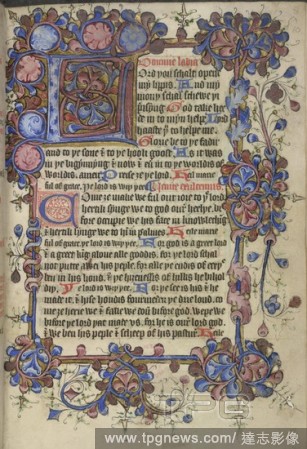 Domine labia
Lord you schalt opene
my lippis. And my
mouþ schal schewe þi
preisyng. God take hede
in to myn help. Lord
haaste þe to helpe me.
Glorie be to þe fadir
and to þe sone & to þe hooli goost. As it was
in þe bigynnyng & now & in to þe worldis of
worldis. amen. Preise ȝe þe lord. Heil marie
ful of grace. þe lord is wiþ þee. Venite exultemus
Come ȝe make we ful out ioie to þe lord
hertili synge we to god oure helþe. be
fore ocupie we his face in knowleching
& hertili synge we to hi in salmes. Heil marie
ful of grace. þe lord is wiþ þee. For god is a greet lord
& a greet kyng aboue alle goddis. for þe lord schal
not putte awei his peple. for alle þe endis of erþe
ben in his hond. & þe hiȝnessis of hillis he bihol
diþ. þe lord is wiþ þee. For þe see is his & he
made it. & hise hondis foundeden þe drie lond. co
me ȝe herie we & falle we doun bifore god. wepe we
bifore þe lord þat made us. for he is oure lord god.
& we ben his peple & scheep of his pasture. Heile
www.tpgnews.com / 達志影像